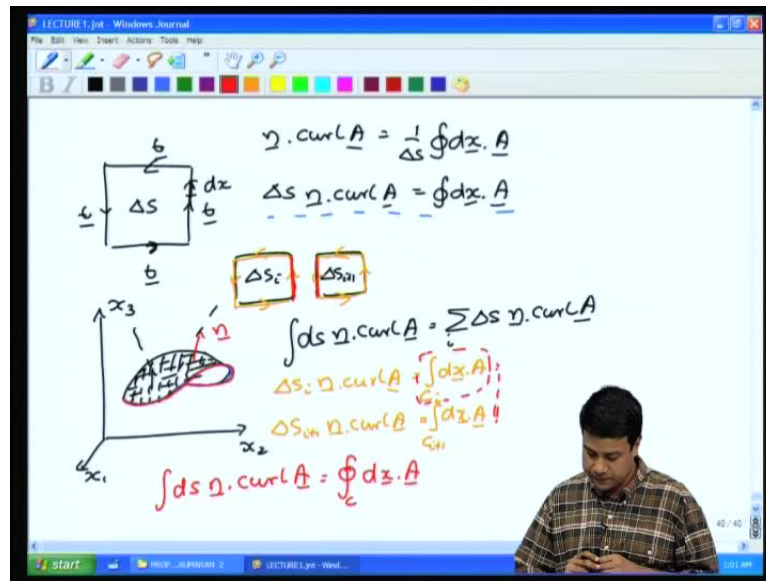 LECTURE1.jnt - Windows Journal
File Edit View Insert Actions Tools Help
B I
n . curl A = 1/ΔS ∮dx . A
t
dx
t ΔS t
t
ΔS n . curl A = ∮dx . A
ΔSi ΔSi+1
x3
n
∫ds n . curl A = Σi ΔS n . curl A
ΔSi n . curl A = ∫Ci dx . A
ΔSi+1 n . curl A = ∫Ci+1 dx . A
x2
x1
∫ds n . curl A = ∮c dx . A
40 / 40
start PROF...KUMARAN 2 LECTURE1.jnt - Wind... 1:01 AM